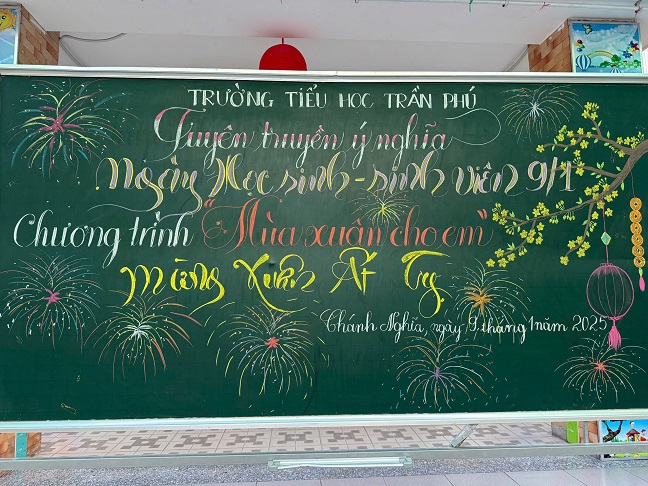 TRƯỜNG TIỂU HỌC TRẦN PHÚ
Tuyên truyền ý nghĩa
Ngày Học sinh - sinh viên 9/1
Chương trình "Mùa xuân cho em"
Mừng Xuân Ất Tỵ
Chánh Nghĩa, ngày 9 tháng 1 năm 2025